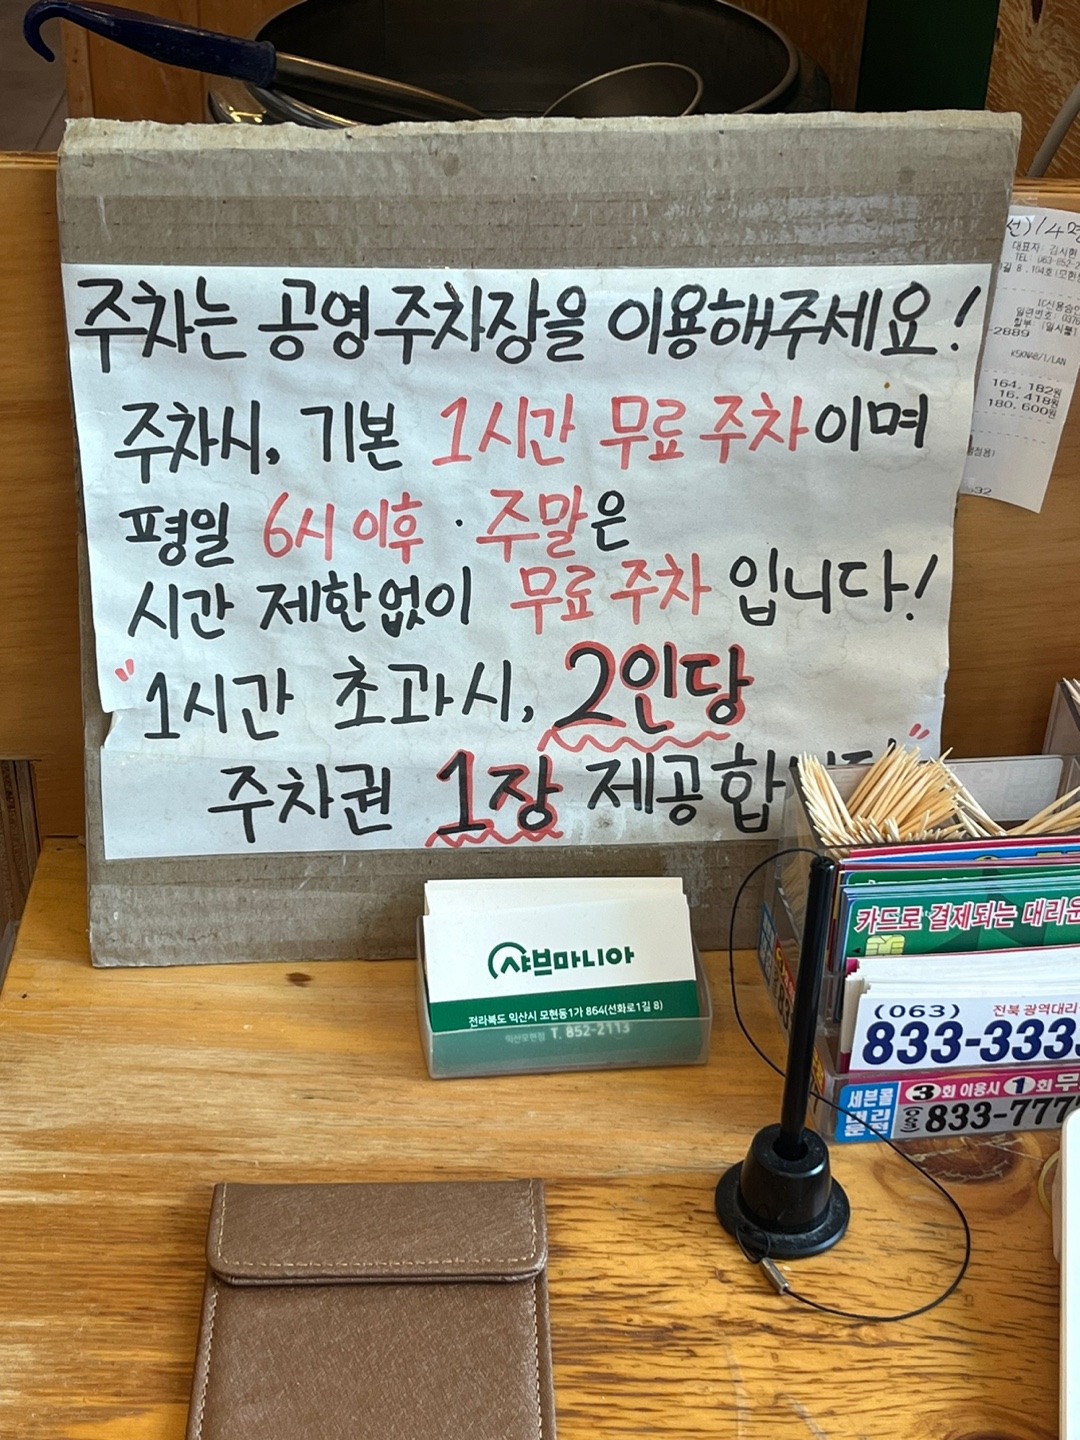 주차는 공영주차장을 이용해주세요!
주차시, 기본 1시간 무료 주차이며
평일 6시 이후 · 주말은
시간 제한없이 무료 주차 입니다!
"1시간 초과시, 2인당
주차권 1장 제공합니다"
대표자: 김시현
TEL: 063-852-2
길 8 , 104호(모현
-2889
KSKNAB/1/LAN
164,182원
16,418원
180,600원
샤브마니아
전라북도 익산시 모현동1가 864(선화로1길 8)
익산모현점 T. 852-2113
카드로 결제되는 대리운
(063) 전북 광역대리
833-333
세븐콜 대리운전
3회 이용시 1회 무
(063) 833-777